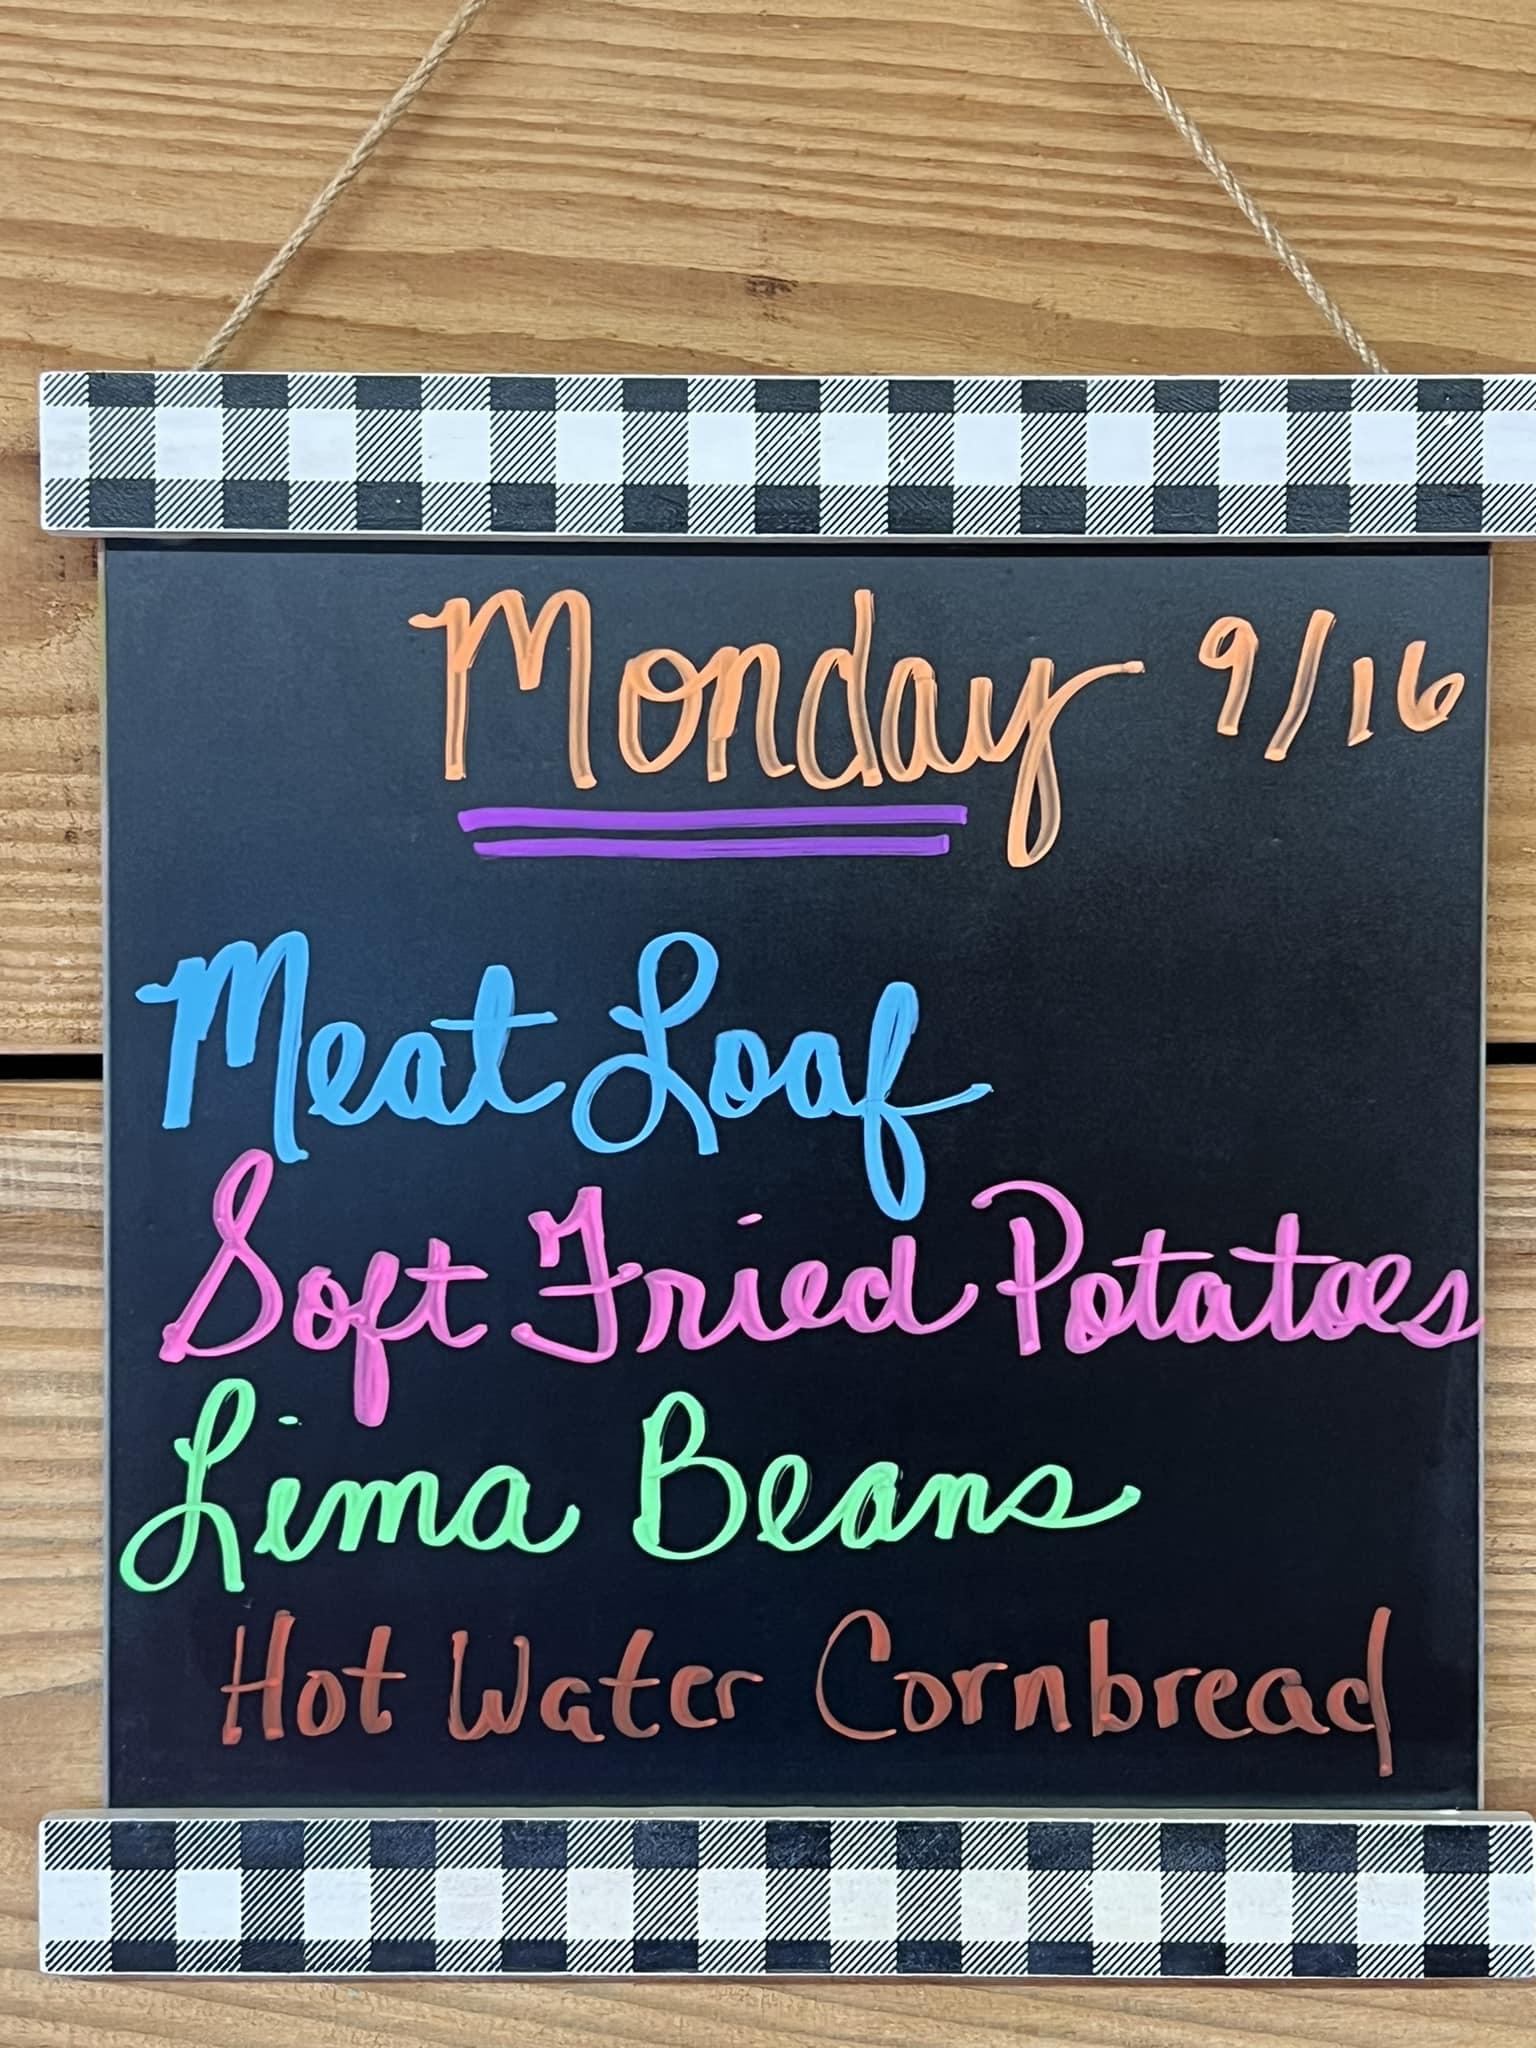 Monday 9/16
Meat Loaf
Soft Fried Potatoes
Lima Beans
Hot Water Cornbread